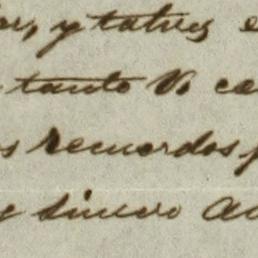 y talvez
tanto V. ca
s recuerdos p
y sincero a